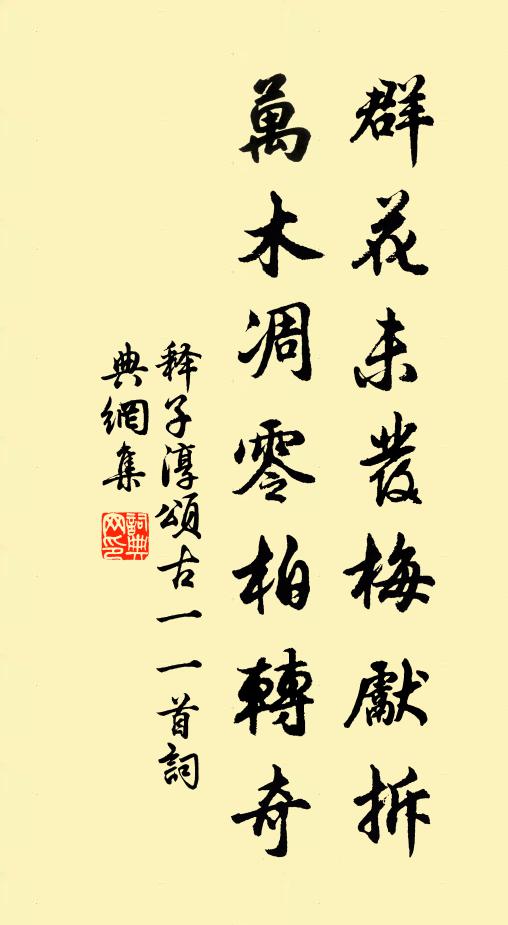 群花未發梅獻拆
萬木凋零柏轉奇
释子淳頌古一一首詞
典網集
詞典
网印